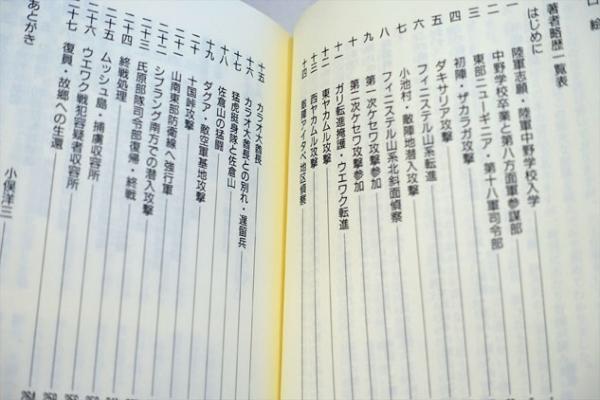 口絵
著者略歴一覧表
はじめに
一 陸軍志願・陸軍中野学校入学
二 中野学校卒業と第八方面軍参謀部
三 東部ニューギニア・第十八軍司令部
四 初陣・ザカラガ攻撃
五 ダキサリア攻撃
六 フィニステル山系転進
七 小池村・敵陣地潜入攻撃
八 フィニステル山系北斜面偵察
九 第一次ケセワ攻撃参加
十 第二次ケセワ攻撃参加
十一 ガリ転進掩護・ウエワク転進
十二 東ヤカムル攻撃
十三 西ヤカムル攻撃
十四 敵陣アイタペ地区偵察
十五 カラオ大酋長
十六 カラオ大酋長との別れ・遅留兵
十七 猛虎挺身隊と佐倉山
十八 佐倉山の猛闘
十九 タダク・敵空軍基地攻撃
二十 十国峠攻撃
二十一 山南東部防衛線へ強行軍
二十二 シブラング南方での潜入攻撃
二十三 氏原部隊司令部復帰・終戦
二十四 終戦処理
二十五 ムッシュ島・捕虜収容所
二十六 ウエワク戦犯容疑者収容所
二十七 復員・故郷への生還
あとがき
小俣洋三